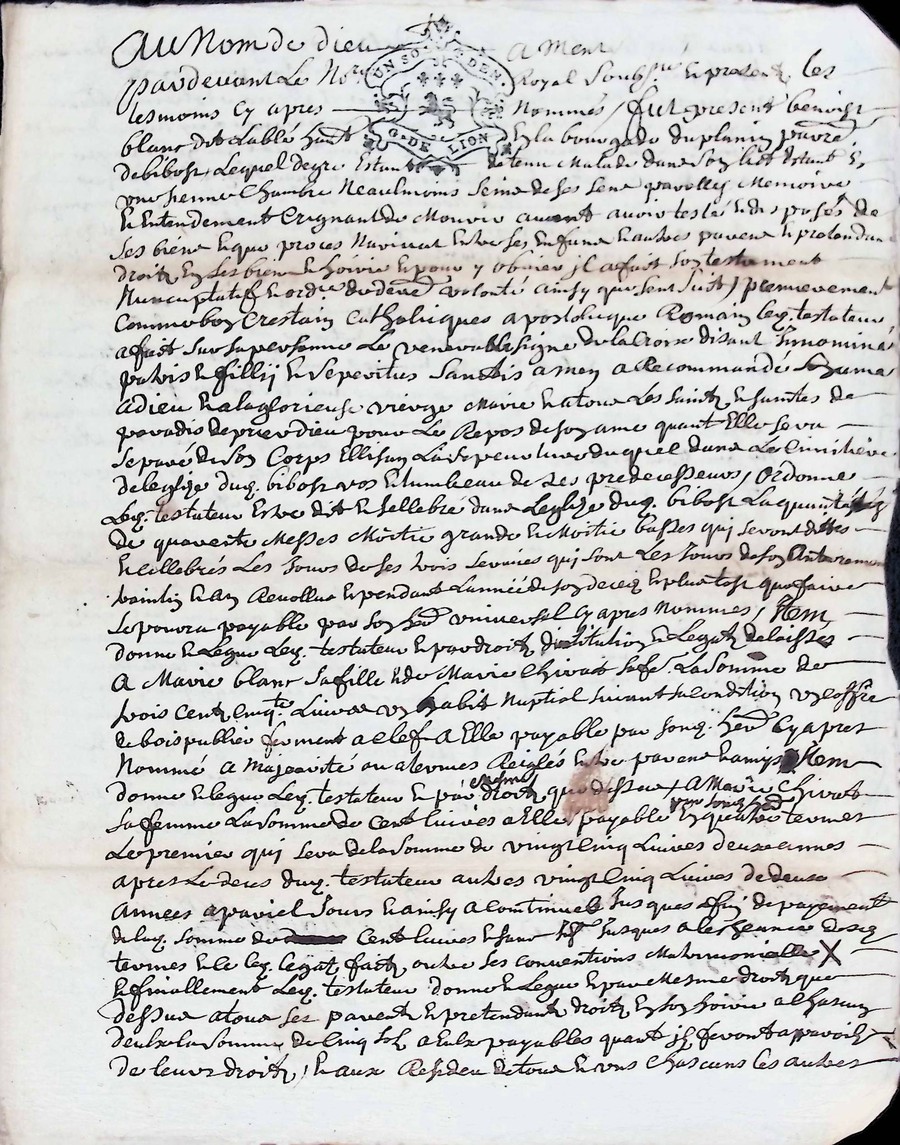 Au Nom de dieu amen
pardevant Le No.re Royal Soubs.né Et present les
tesmoins Cy apres Nommés / fut present benoist
UN SO. DEN.
G. DE LION
blanc dit Labbé En la bourgade du planin parre
de bibost Lequel de gre Estant detenu Malade dans Son lict Estant En
une sienne Chambre Neaulmoins Seine de ses Sens parolles Memoire
et Entendement Craignant de Mourir avant avoir testé et disposés de
Ses biens et que proces Navint Entre ses Enfans et autres parens et pretendans
droits En Ses biens et hoirie et pour y obvier jl a fait Son testament
Nuncupatif et ord.re de dere volonté ainsy que sen suit / premierement
Comme bon Crestain Catholicques apostolicque Romain led. testateur
a fait sur sa personne Le venerable signe de la Croix disant Innominé
patris et fillij et Speritus Santtis amen a Recommandé Son ame
a dieu et a la glorieuse vierge Marie et a tous Les Saints et saintes de
paradis de prier dieu pour Le Repos de son ame quant Elle sera
Separé de Son Corps Ellisan La Sepeulture duquel dans Le Cimitiere
de leglize dud. bibost vos Et tumbeau de Ses predecesseurs / Ordonne
Led. testateur Estre dit et Cellebré dans Leglize dud. bibost La quantité
de quarente Messes Moitie grande et Moitie basses qui seront dittes
et Cellebrés Les Jours de ses trois Services qui sont Les Jours de son Enterrement
et an Revollu et pendant Lannée de son deces et plus tost que faire
Se pourra payable par Son her.r universel Cy apres Nommes / Item
donne et Legue Led. testateur et par droit dinstitution et Legat delaisse
A Marie blanc Sa fille et de Marie Chivat sa fe. La somme de
trois Cent Cinq.te Livres un habit Nuptial suivant sa condition un Coffre
de bois publie ferment a clef a Elle payable par sond. her.r Cy apres
Nommé a Majorité ou a termes Reiglés Entre parens et amys Item
donne et legue Led. testateur et par mesme droit que dessus A Marie Chivat
Sa femme La Somme de Cent Livres a Elle payable par sond. her.r En quatre termes
Le premier qui sera de la Somme de vingt Cinq Livres deux annes
apres Le deces dud. testateur autres vingt Cinq Livres de deux
Annees a pariel Jours et ainsy a Continuer Jusques a fin de payement
de lad. Somme de Cent Livres et sans Jusques a lescheance desd.
termes et le led. Legat fait outre ses conventions Matrimonielles X
et finallement Led. testateur donne et Legue et par Mesme droit que
dessus a tous Ses parens et pretendant droit En Son hoirie a Chascun
deulx La Somme de Cinq Sols a Eulx payables quant jls feront apparoistre
de leurs droits / et aux Resideu de tous et uns Chascuns Les autres